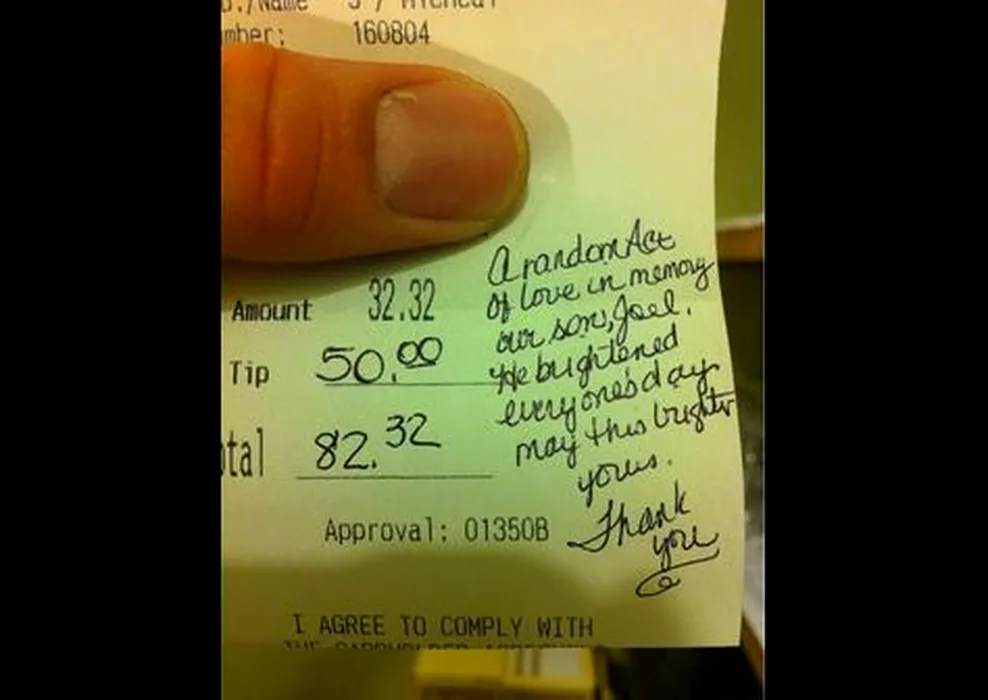 160804
Amount 32.32
Tip 50.00
82.32
A random Act
of love in memory
our son, Joel.
He brightened
everyone's day
may this brighten
yours.
Thank
you
Approval: 01350B
I AGREE TO COMPLY WITH